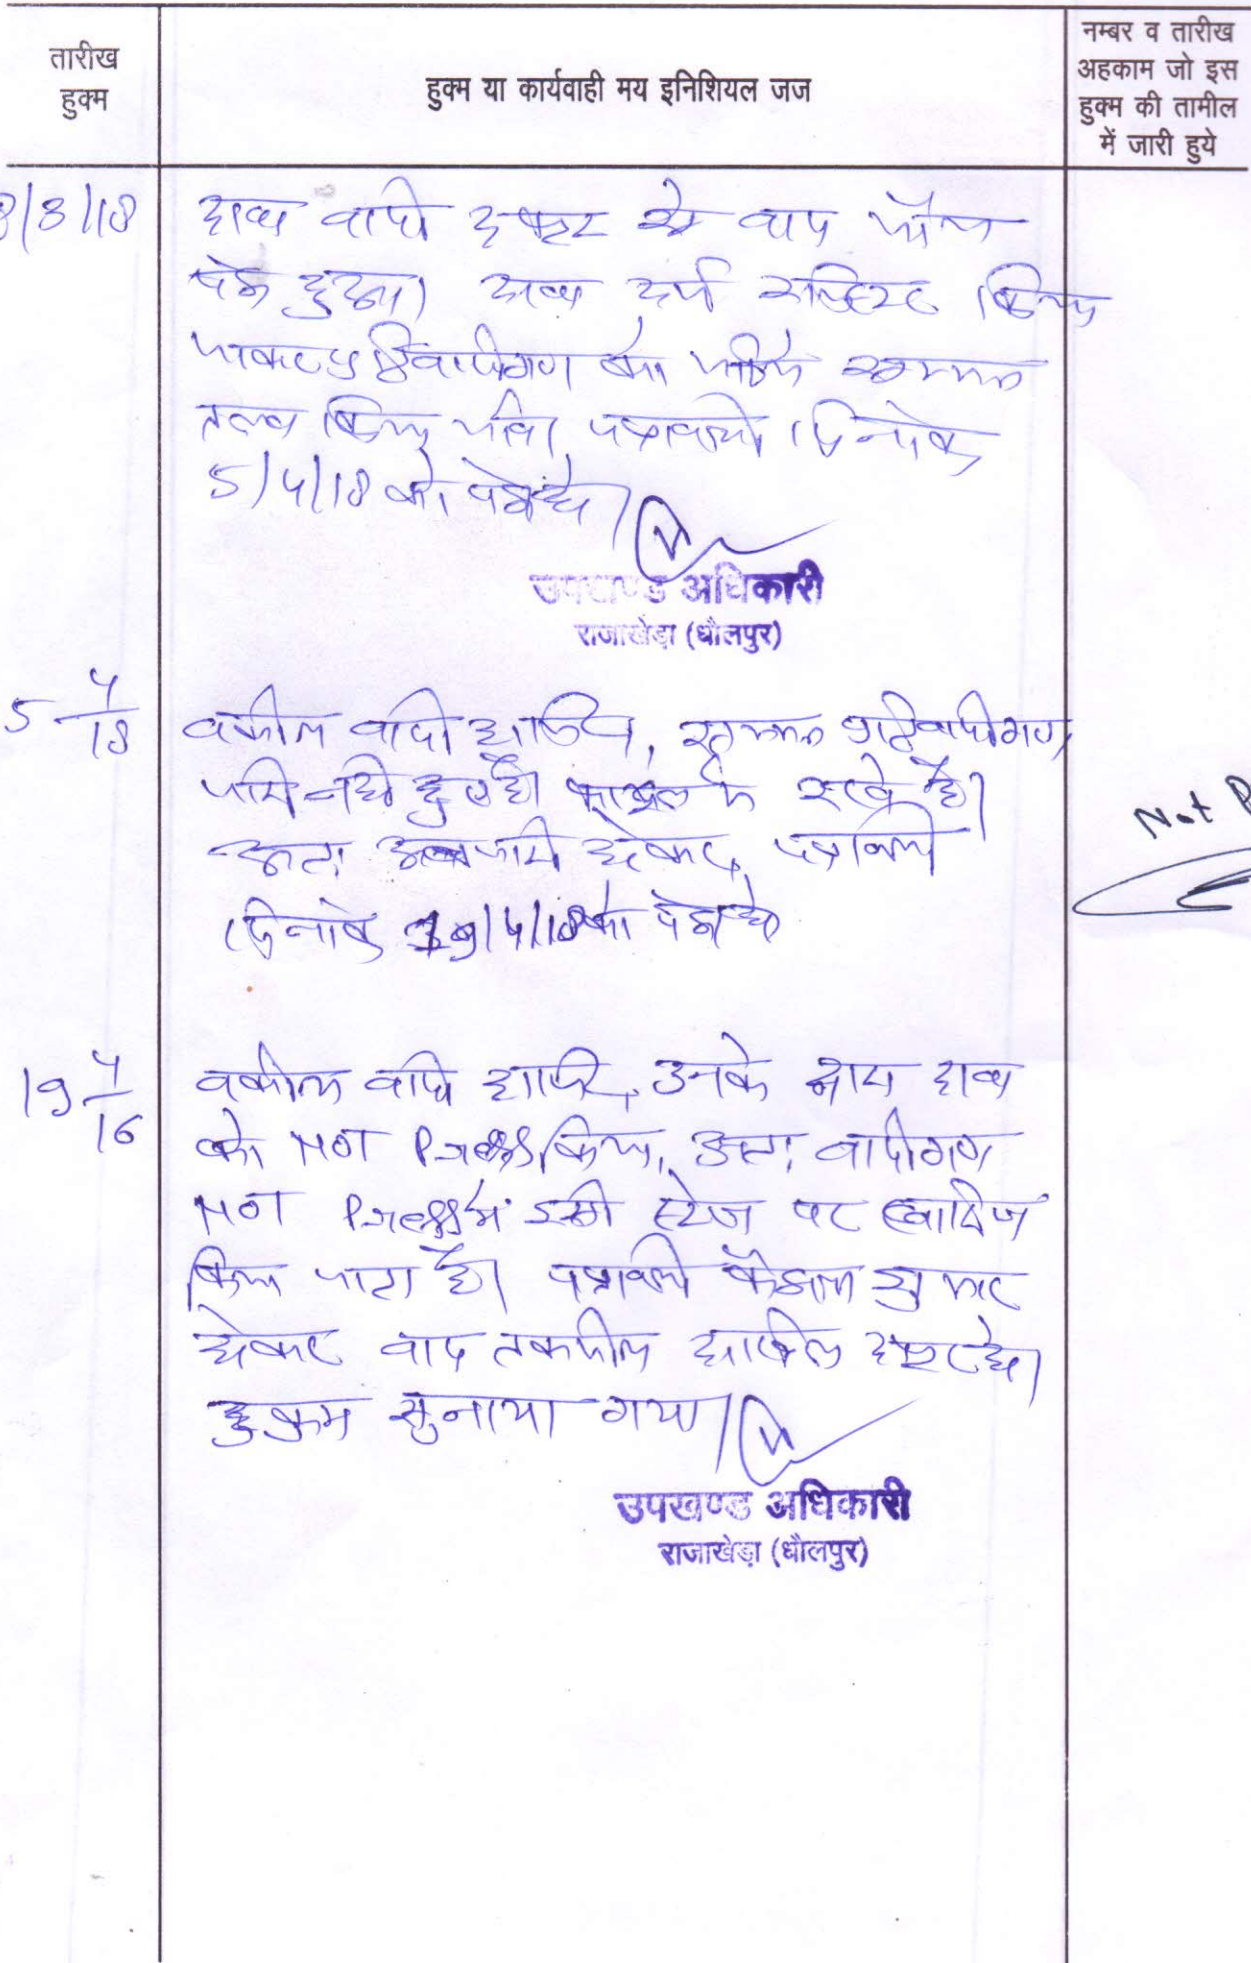 तारीख
हुक्म
हुक्म या कार्यवाही मय इनिशियल जज
नम्बर व तारीख
अहकाम जो इस
हुक्म की तामील
में जारी हुये
8/3/18
वाद
पेश हुआ। दर्ज रजिस्टर किया
जाकर प्रतिवादीगण को जरिये सम्मन
तलब किया जावे। पत्रावली दिनांक
5/4/18 को पेश हो।
उपखण्ड अधिकारी
राजाखेड़ा (धौलपुर)
5 4/18
वकील वादी हाजिर, सम्मन प्रतिवादीगण
जारी नही हुए है।
अतः जारी होकर पत्रावली
दिनांक 19/4/18 को पेश हो
Not P
19 4/16
वकील वादी हाजिर, उनके द्वारा दावा
को Not Press किया, अतः वादीगण
Not Press में इसी स्टेज पर खारिज
किया जाता है। पत्रावली फैसल शुमार
होकर बाद तकमील दाखिल दफ्तर हो।
हुकुम सुनाया गया।
उपखण्ड अधिकारी
राजाखेड़ा (धौलपुर)